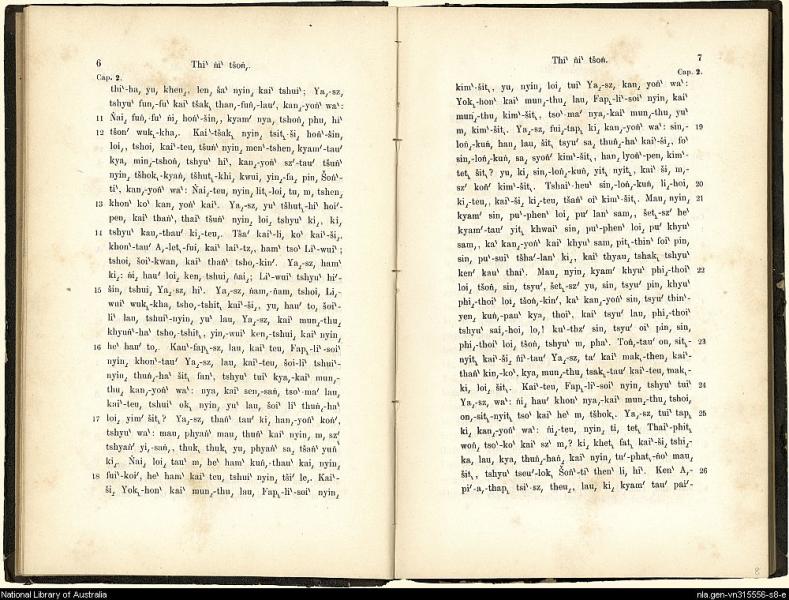 6
Thi‘ ńi‘ tšoń‚.
Cap. 2.
thi‘-ha, yu, khen¸, len, ša‘ nyin¸ kai‘ tshui‘; Ya¸-sz,
tshyu‘ fun‚-fu‘ kai‘ tšak‚ than‚-fun‚-lau‘, kan¸-yoń‘ wa‘:
11 Ńai, fuń‚-fu‘ ńi, hoń‘-šin‚, kyam‘ nya, tshoń, phu, hi‘
12 tšon‘ wuk‚-kha‚. Kai‘-tšak, nyin, tsit‚-ši¸ hoń‘-šin,
loi‚, tshoi, kai‘-teu, tšuń‘ nyin, men‘-tshen, kyam‘-tau‘
kya, min‚-tshoń, tshyu‘ hi‘, kan‚-yoń‘ sz‘-tau‘ tšuń‘
nyin, tšhok‚-kyań, tšhut‚-khi, kwui, yin‚-fa‚ pin, Šoń‘-
ti‘, kan‚-yoń‘ wa‘: Ńai¸-teu, nyin, lit‚-loi, tu, m, tshen,
13 khon‘ ko‘ kan, yoń‘ kai‘. Ya‚-sz, yu‘ tšhut‚-hi‘ hoi‘-
pen, kai‘ thań‘, thai‘ tšuń‘ nyin, loi, tshyu‘ ki¸, ki,
14 tshyu‘ kau‚-thau‘ ki‚-teu‚. Tša‘ kai‘-li, ko‘ kai‘-ši¸,
khon‘-tau‘ A‚-let‚-fui, kai‘ lai‘-tz‚, ham‘ tso‘ Li‘-wui‘;
tshoi, šoi‘-kwan, kai‘ thań‘ tsho‚-kin‘. Ya‚-sz, ham‘
ki¸: ńi, hau‘ loi ken, tshui, ńai¸; Li‘-wui‘ tshyu‘ hi‘-
15 šin, tshui, Ya‚-sz, hi‘. Ya‚-sz, ńam‚-ńam, tshoi, Li‚-
wui‘ wuk‚-kha, tsho‚-tshit, kai‘-ši¸, yu, hau‘ to, šoi‘-
li‘ lau, tshui‘-nyin, yu‘ lau, Ya‚-sz, kai‘ mun‚-thu
khyuń‘-ha‘ tsho‚-tshit‚, yin‚-wui‘ ken‚-tshui, kai‘ nyin¸
16 he‘ hau‘ to,. Kau‘-fap‚-sz, lau, kai‘ teu, Fap‚-li‘-soi‘
nyin¸ khon‘-tau‘ Ya‚-sz, lau, kai‘-teu, šoi‘-li‘ tshui‘-
nyin, thuń‚-ha‘ šit, fan‘, tshyu‘ tui‘ kya‚-kai‘ mun‚-
thu, kan‚-yoń‘ wa‘: nya, kai‘ sen‚-sań, tso‘-ma‘ lau,
kai‘-teu, tshui‘ ok, nyin, yu‘ lau, šoi‘ li‘ thuń‚-ha‘
17 loi, yim‘ šit‚? Ya‚-sz, thań‘ tau‘ ki, han‚-yoń‘ koń‘,
tshyu‘ wa‘: mau, phyań‘ mau, thuń‘ kai‘ nyin, m, sz‘
tshyań‘ yi‚-sań‚, thuk, thuk, yu, phyań‘ sa, tšań‘ yuń‘
ki¸. Ńai, loi, tau‘ m, he‘ ham‘ kuń‚-thau‘ kai, nyin,
18 fui‘-koi‘, he‘ ham‘ kai‘ teu, tshui‘ nyin, tši‘ le,. Kai‘-
ši¸ Yok‚-hon‘ kai‘ mun‚-thu, lau, Fap‚-li‘-soi‘ nyin¸
Thi‘ ńi‘ tšoń.
7
Cap. 2.
kim‘-šit‚, yu, nyin, loi, tui‘ Ya‚-sz, kan¸ yoń‘ wa‘:
Yok‚-hon‘ kai‘ mun‚-thu lau, Fap‚-li‘-soi‘ nyin, kai‘
mun‚-thu, kim‘-šit‚, tso‘ ma‘ nya‚-kai‘ mun‚-thu, yu‘
m, kim‘-šit‚. Ya‚-sz, fui‚-tap, ki, kan¸-yoń‘ wa‘: sin‚- 19
loń‚-kuń, han, lau, šit, tsyu‘ sa, thuń¸-ha‘ kai‘-ši¸, fo‘
sin‚-loń‚-kuń, sa, syoń‘ kim‘-šit‚, han, lyoń‘-pen, kim‘-
tet, šit‚? yu, ki, sin‚-loń‚-kuń, yit, nyit‚, kai‘ ši, m‚-
sz‘ koń‘ kim‘-šit‚. Tshai‘-heu‘ sin‚-loń‚-kuń, li‚-hoi, 20
ki‚-teu‚, kai‘-ši, ki‚-teu, tšań‘ oi‘ kim‘-šit‚. Mau, nyin, 21
kyam‘ sin, pu‘-phen‘ loi, pu‘ lan‘ sam‚, šet‚-sz‘ he‘
kyam‘-tau‘ yit, khwai‘ sin, pu‘-phen, loi, pu‘ khyu‘
sam‚, ka‘ kan¸-yoń‘ kai‘ khyu‘ sam, pit‚-thin‘ foi‘ pin,
sin, pu‘-sui‘ tšha‘-lan‘ ki¸, kai‘ thyau, tshak, tshyu‘
ken‘ kau‘ thai‘. Mau, nyin, kyam‘ khyu‘ phi‚-thoi‘ 22
loi, tšoń, sin, tsyu‘, šet‚-sz‘ yu, sin, tsyu‘ pin, khyu‘
phi‚-thoi‘ loi, tšoń‚-kin‘, ka‘ kan¸-yoń‘ sin, tsyu‘ thin‘-
yen, kuń‚-pau‘ kya, thoi‘, kai‘ tsyu‘ lau, phi‚-thoi‘
tshyu‘ sai‚-hoi, lo,! ku‘-thz‘ sin, tsyu‘ oi‘ pin, sin,
phi‚-thoi‘ loi, tšoń, tshyu‘ m, pha‘. Toń‚-tau‘ on, sit‚- 23
nyit, kai‘-ši¸ ńi‘-tau‘ Ya‚-sz, ta‘ kai‘ mak‚-then, kai‘-
thań‘ kin‚-ko‘, kya, mun‚-thu, tsak‚-tau‘ kai‘-teu, mak‚-
ki, loi, šit‚. Kai‘-teu, Fap‚-li‘-soi‘ nyin, tshyu‘ tui‘ 24
Ya‚-sz, wa‘: ńi, hau‘ khon‘ nya‚-kai‘ mun‚-thu, tshoi,
on‚-sit‚-nyit, tso‘ kai‘ he‘ m, tšhok‚. Ya‚-sz, tui‘ tap, 25
ki, kan¸-yoń‘ wa‘: ńi‚-teu, nyin, ti, tet, Thai‘-phit,
woń, tso‘-ko‘ kai‘ sz‘ m‚? ki, khet, fat, kai‘-ši, tshi¸-
ka, lau, kya, thuń‚-hań, kai‘ nyin, tu‘-phat‚-ńo‘ mau,
šit‚, tshyu‘ tseu‘-lok, Šoń‘-ti‘ then‘ li, hi‘. Ken‘ A‚- 26
pi‘-a‚-thap, tsi‘-sz, theu‚, lau, ki, kyam‘ tau‘ pai‘-
8
National Library of Australia
nla.gen-vn315556-s8-e